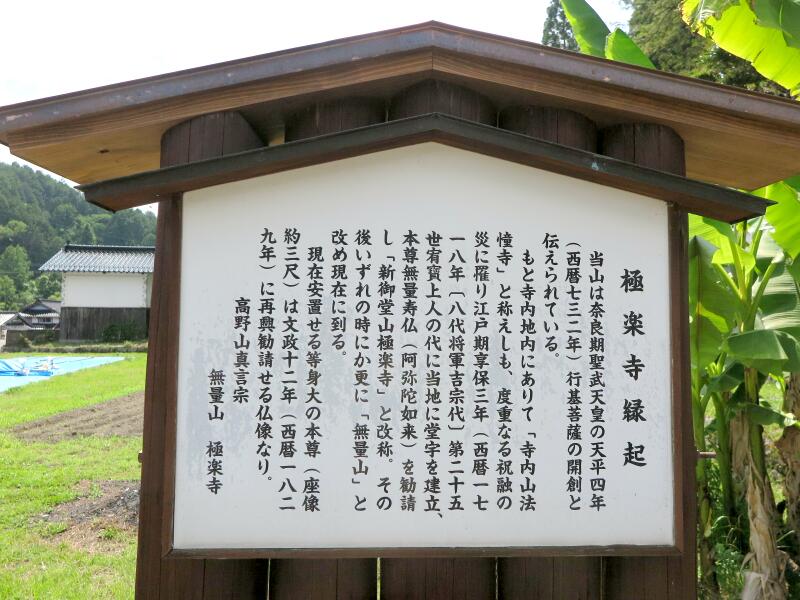 極楽寺縁起
当山は奈良期聖武天皇の天平四年
(西暦七三二年)行基菩薩の開創と
伝えられている。
もと寺内地内にありて「寺内山法
憧寺」と称えしも、度重なる祝融の
災に罹り江戸期享保三年(西暦一七
一八年〔八代将軍吉宗代〕第二十五
世宥寶上人の代に当地に堂宇を建立、
本尊無量寿仏(阿弥陀如来)を勧請
し「新御堂山極楽寺」と改称。その
後いずれの時にか更に「無量山」と
改め現在に到る。
現在安置せる等身大の本尊(座像
約三尺)は文政十二年(西暦一八二
九年)に再興勧請せる仏像なり。
高野山真言宗
無量山 極楽寺